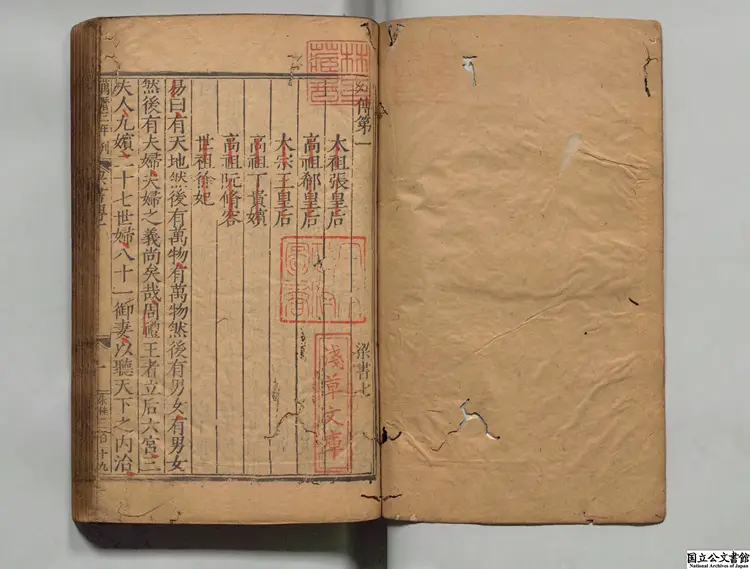 林氏藏書
傳第一
梁書七
日本政府圖書
淺草文庫
太祖張皇后
高祖郗皇后
太宗王皇后
高祖丁貴嬪
高祖阮脩容
世祖徐妃
易曰有天地然後有萬物有萬物然後有男女有男女
然後有夫婦夫婦之義尚矣哉周禮王者立后六宮三
夫人九嬪二十七世婦八十一御妻以聽天下之内治
国立公文書館
National Archives of Japan